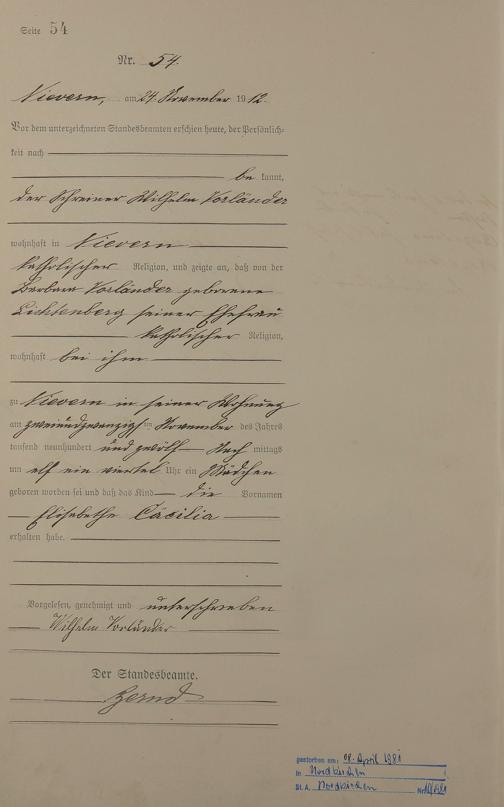 Seite 54
Nr. 54.
Nievern, am 24. November 1912.
Vor dem unterzeichneten Standesbeamten erschien heute, der Persönlich-
keit nach
be kannt,
der Schreiner Wilhelm Vorländer
wohnhaft in Nievern
katholischer Religion, und zeigte an, daß von der
Barbara Vorländer geborene
Lichtenberg seiner Ehefrau
katholischer Religion,
wohnhaft bei ihm
zu Nievern in seiner Wohnung
am zweiundzwanzigsten November des Jahres
tausend neunhundert und zwölf Nach mittags
um elf ein viertel Uhr ein Mädchen
geboren worden sei und daß das Kind die Vornamen
Elisabetha Cäcilia
erhalten habe.
Vorgelesen, genehmigt und unterschrieben
Wilhelm Vorländer
Der Standesbeamte.
gestorben am: 08. April 1981
in Nordkirchen
St. A. Nordkirchen Nr.